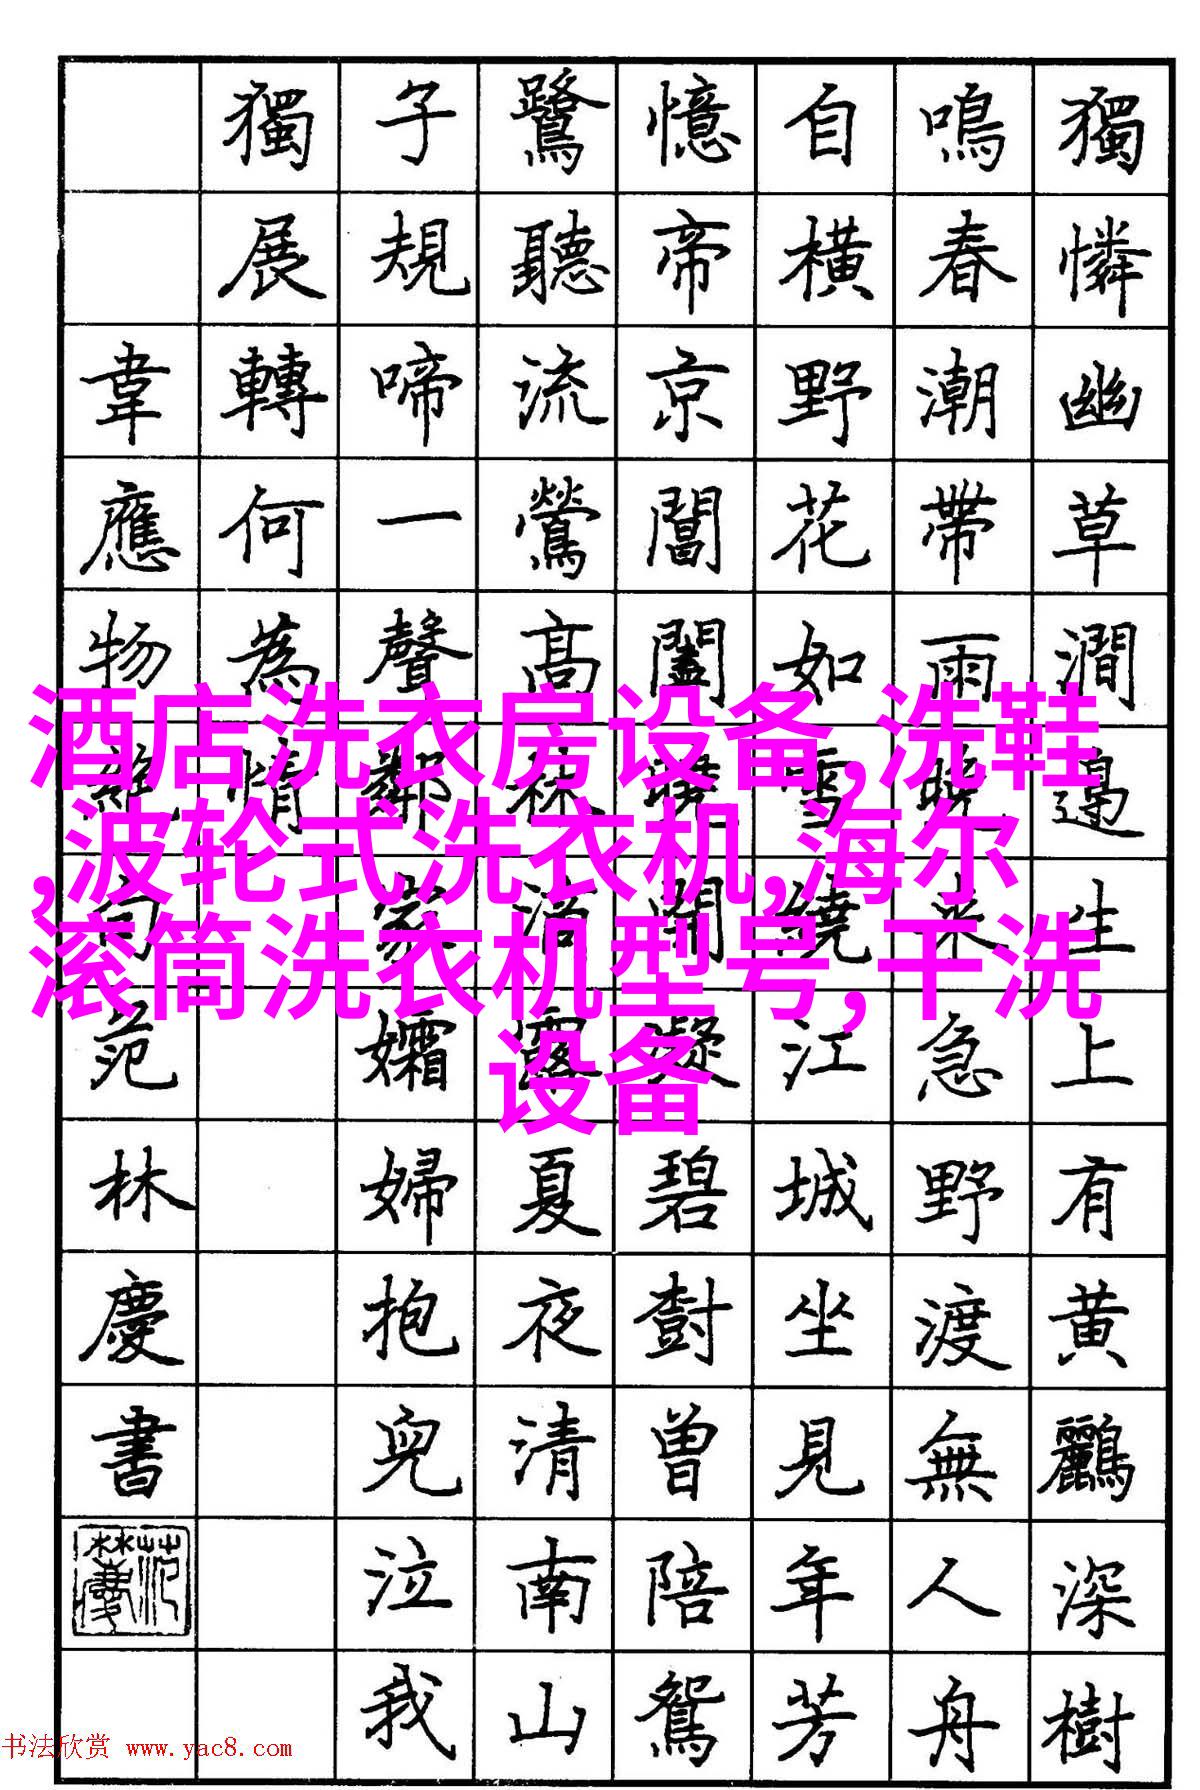 獨憐幽草澗邊生上有黄鸝深樹
鳴春潮帶雨晚来急野渡無人舟
自橫野花如雪繞江城坐見年芳
憶帝京閶闔曉開凝碧樹曾陪鴛
鷺聽流鶯髙林滴露夏夜清南山
子規啼一聲鄰家孀婦抱兒泣我
獨展轉何為情
韋應物絕句范林慶書
酒店洗衣房设备,洗鞋
,波轮式洗衣机,海尔
滚筒洗衣机型号,干洗
设备
书法欣赏 www.yac8.com